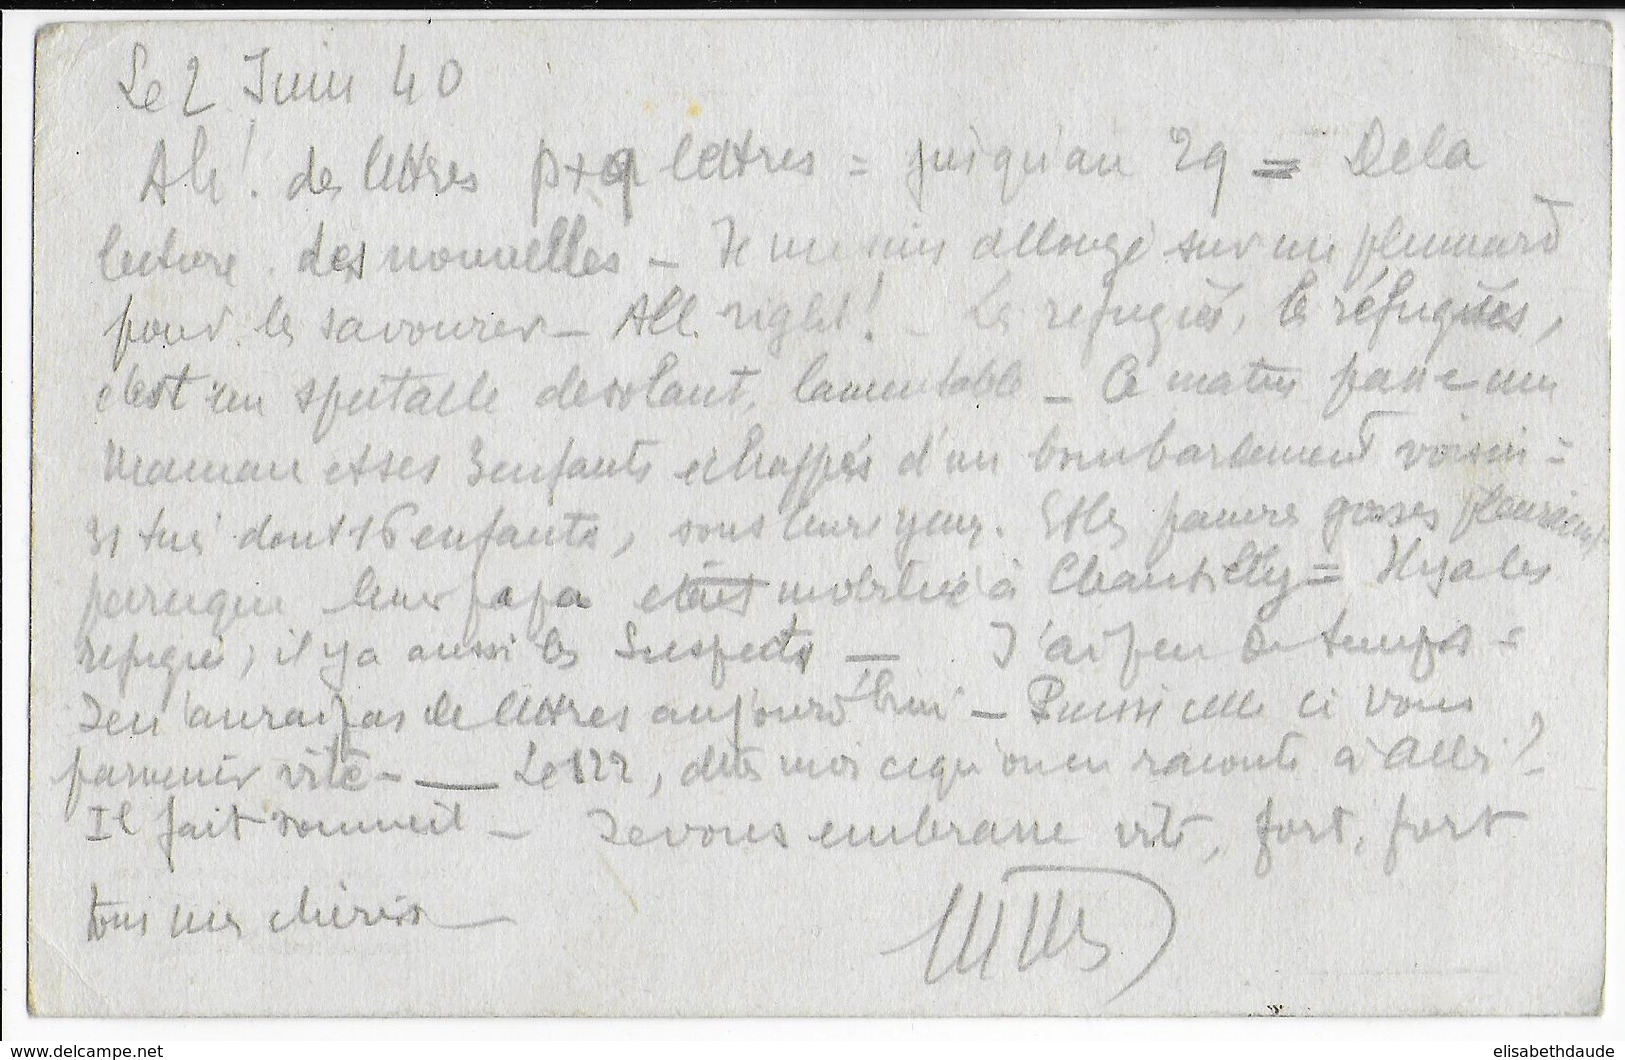 Le 2 Juin 40
Ah! des lettres p+q lettres = jusqu'au 29 = De la
lecture. des nouvelles - Je me suis allongé sur un plumard
pour les savourer - All right! - Les refugiés, les réfugiés,
c'est un spectacle desolant, lamentable - Ce matin pauvre
maman et ses 3 enfants echappés d'un bombardement voisin =
31 tués dont 16 enfants, sous leurs yeux. Et les pauvres gosses
parceque leur papa était mobilisé à Chantilly = Il y a les
refugiés, il y a aussi les Suspects - J'ai peu de temps =
Je n'aurai pas de lettres aujourd'hui - Puisse celle ci vous
parvenir vite - Le 122, dites moi ce qu'on en raconte à
Il fait sommeil - Je vous embrasse vite, fort, fort
tous mes chéris
elisabethdaude
www.delcampe.net